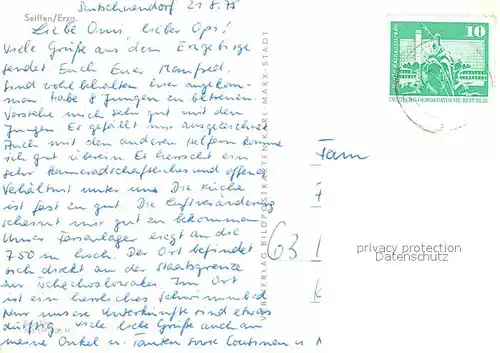 Deutschneudorf 21.8.75
Seiffen/Erzg.
Liebe Omi, lieber Opi!
Viele Grüße aus dem Erzgebirge
sendet Euch Euer Manfred.
Sind wohlbehalten hier angekom-
men. Habe 8 Jungen zu betreuen.
Verstehe mich sehr gut mit den
Jungen. Es gefällt mir ausgezeichnet
Auch mit den anderen Helfern komme
ich gut überein. Es herrscht ein
sehr kameradschaftliches und offenes
Verhältnis unter uns. Die Küche
ist fast zu gut. Die Luftveränderung
scheint mir gut zu bekommen.
Unser Ferienlager liegt an die
750 m hoch. Der Ort befindet
sich direkt an der Staatsgrenze
zur Tschechoslowakei. Im Ort
ist ein herrliches Schwimmbad
Nur unsere Unterkünfte sind etwas
dürftig. Viele liebe Grüße auch an
meine Onkel u. Tanten sowie Cousinen u.
VEB BILD UND HEIMAT
BILDPOSTKARTEN KARL-MARX-STADT
10
DEUTSCHE DEMOKRATISCHE REPUBLIK
Fam
63
privacy protection
Datenschutz